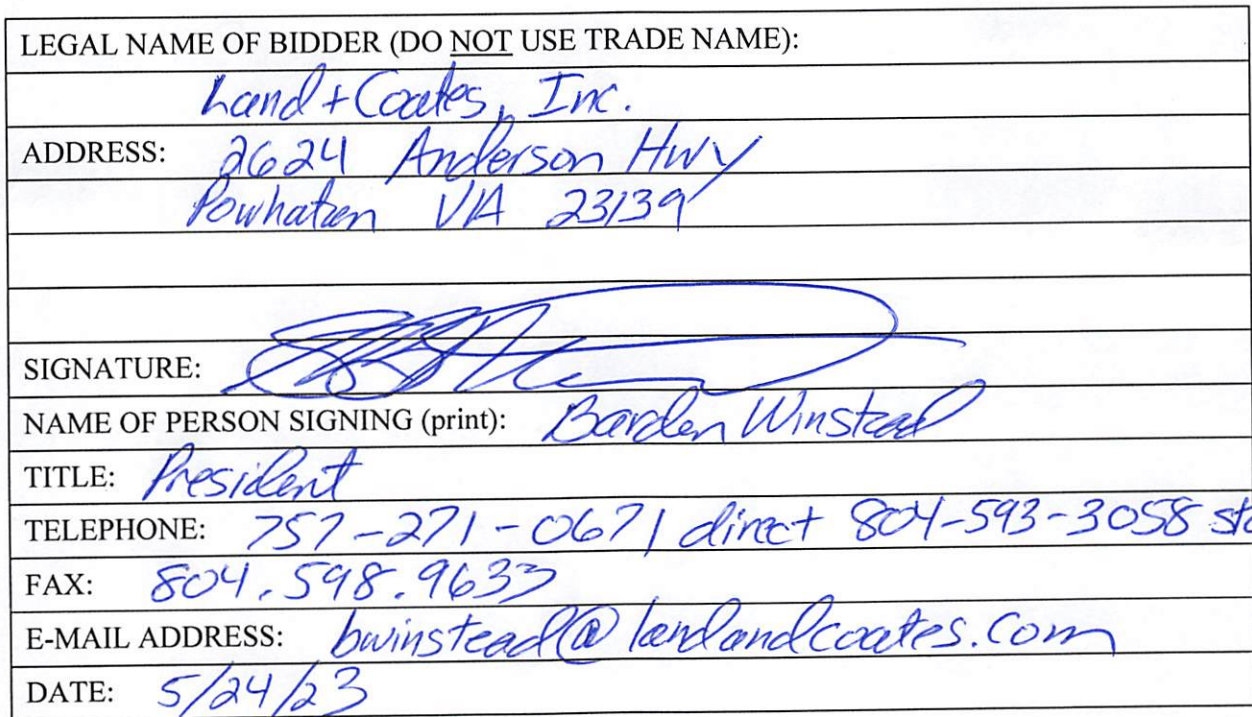 LEGAL NAME OF BIDDER (DO NOT USE TRADE NAME):
Land + Coates, Inc.
ADDRESS: 2624 Anderson Hwy
Powhatan VA 23139
SIGNATURE:
NAME OF PERSON SIGNING (print): Barden Winstead
TITLE: President
TELEPHONE: 757-271-0671 direct 804-593-3058
FAX: 804.598.9633
E-MAIL ADDRESS: bwinstead@landandcoates.com
DATE: 5/24/23